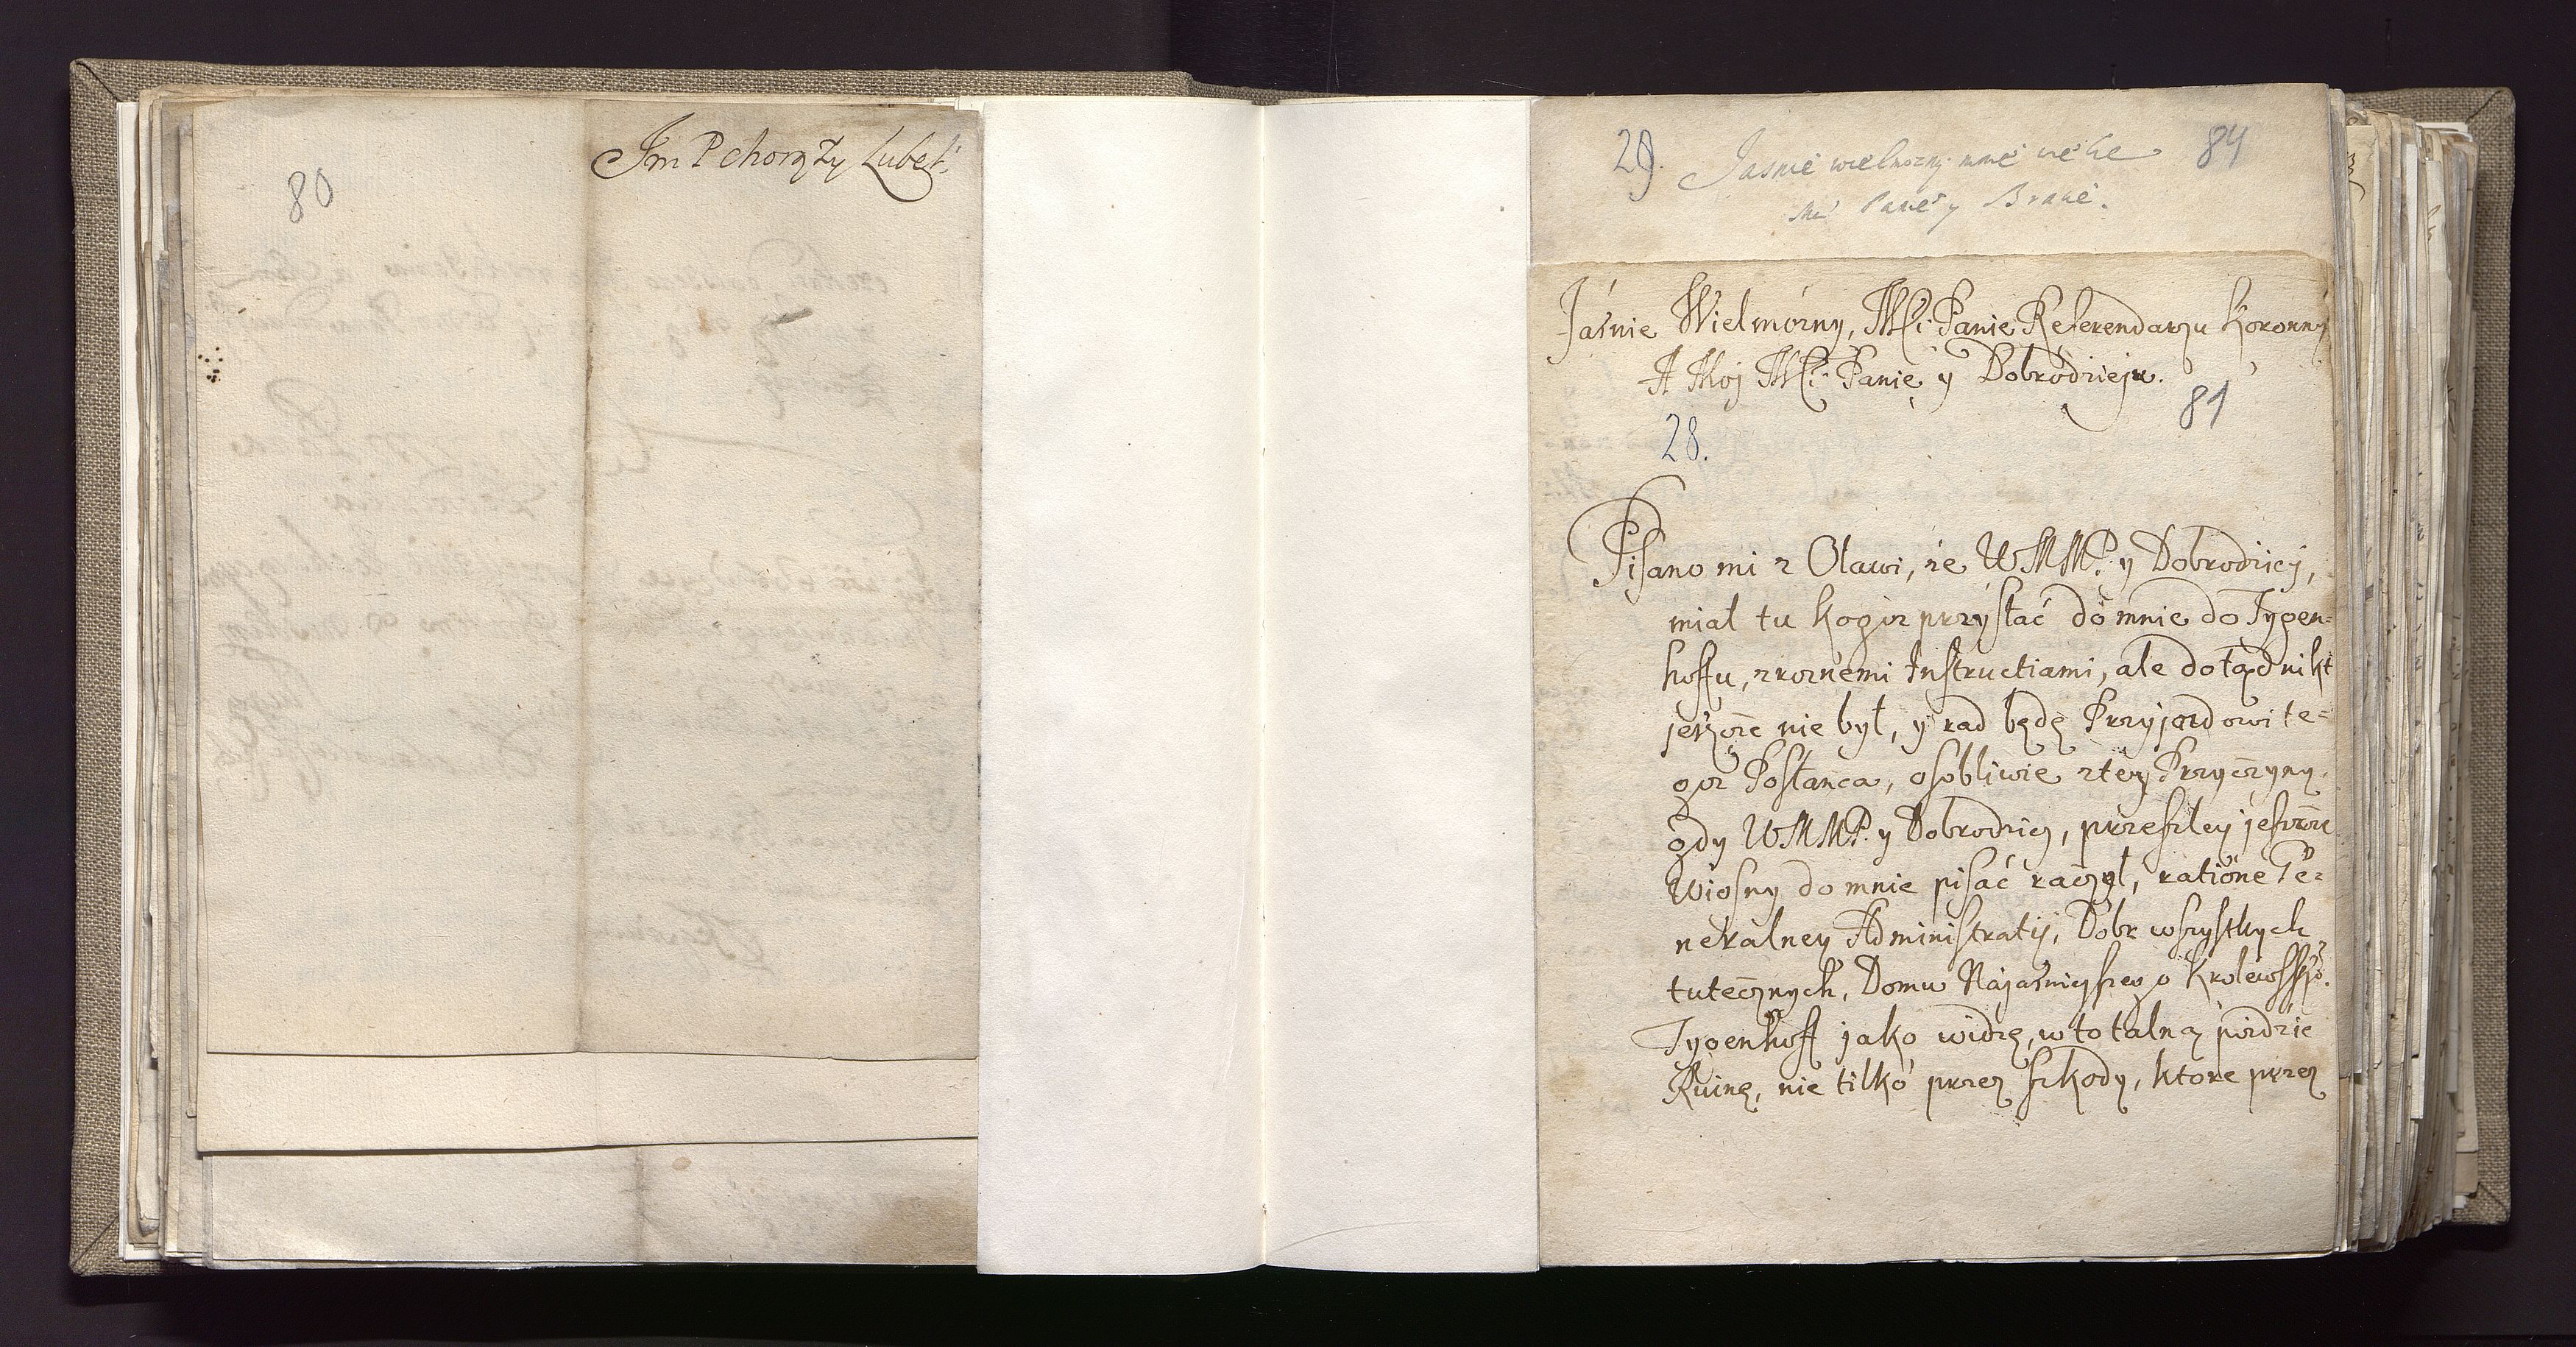 80
Jm P chorąży Lubel:
29. 84
Jasnie wielmozny mnie wielce
Mći Panie y Bracie.
Jásnie Wielmózny, Mći Panie Referendarzu Koronny
A Moj Mći Panie y Dobrodzieju.
81
28.
Pisano mi z Olawi, że WMMP. y Dobrodziey,
miał tu kogoz przysłać do mnie do Tygen=
hoffu, z roznemi Instructiami, ale dotąd nikt
jeszcze nie był, y rad będę Przyjazdowi te=
goz Posłańca, osobliwie z tey Przyczyny,
gdy WMMP. y Dobrodziey, przeszley jeszcze
Wiosny do mnie pisać raczył, ratione Ge=
neralney Administratij, Dobr wszystkych
tutecznych, Domu Najaśnieyszego Krolewsskº.
Tygenhoff jako widzę, w totalną poidzie
Ruinę, nie tilko przez szkody, ktore przez